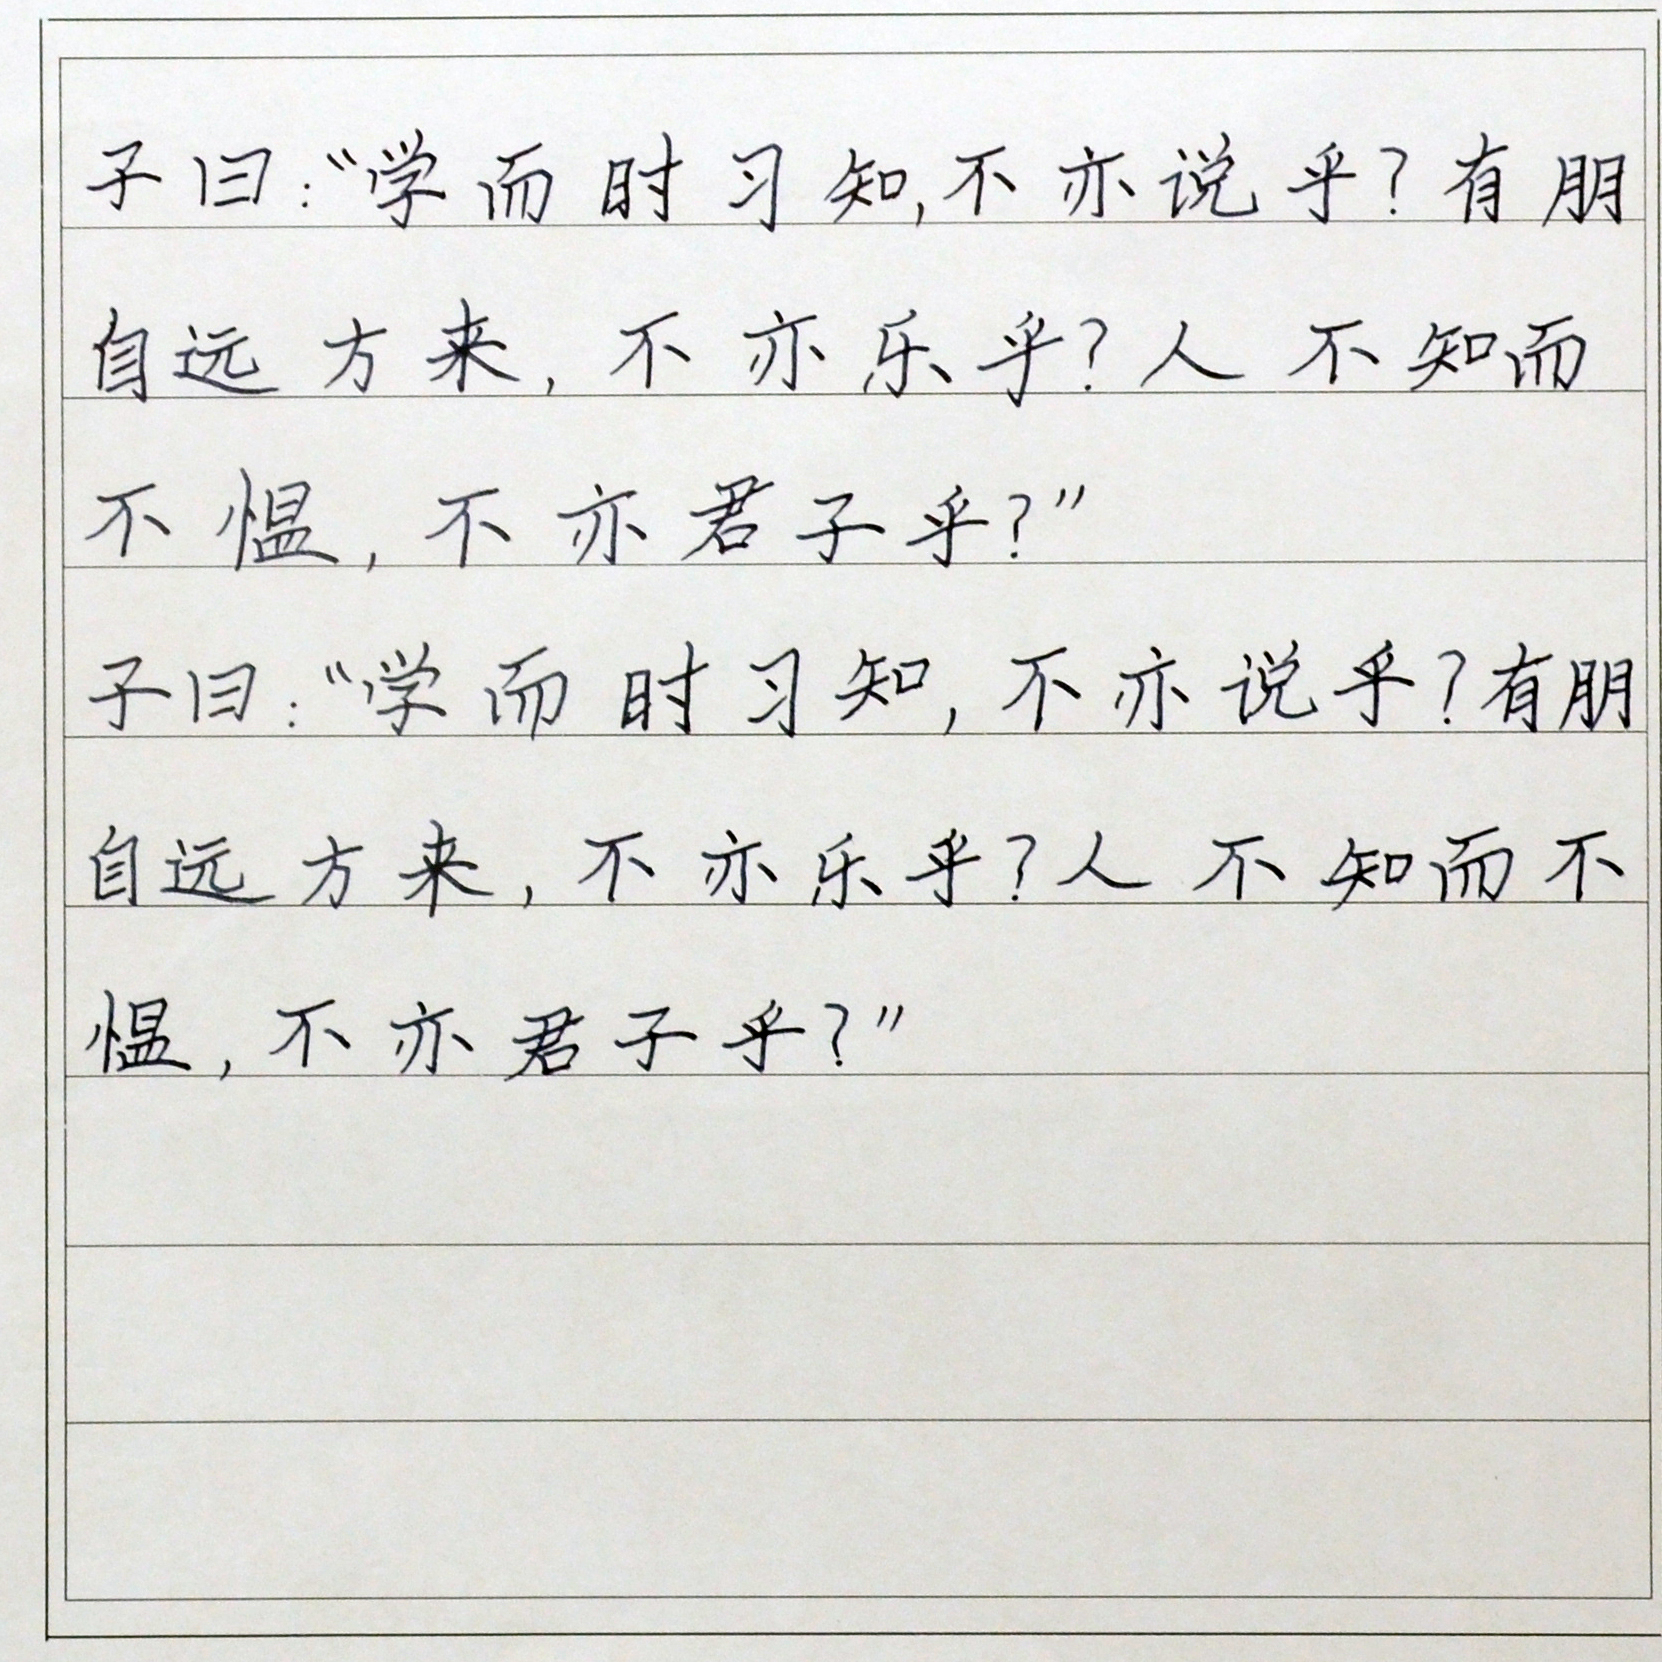 子曰：“学而时习知，不亦说乎？有朋
自远方来，不亦乐乎？人不知而
不愠，不亦君子乎？”
子曰：“学而时习知，不亦说乎？有朋
自远方来，不亦乐乎？人不知而不
愠，不亦君子乎？”